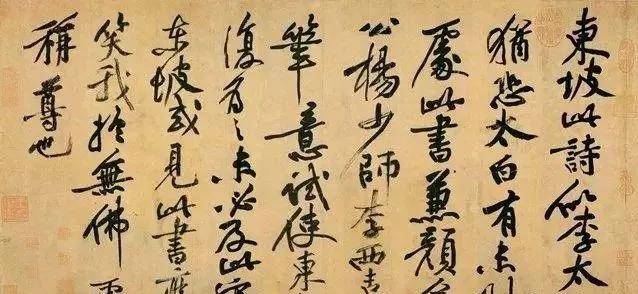 東坡此詩似李太
猶恐太白有未到
處此書兼顏
公楊少師李西
筆意試使東
復為之未必及此
東坡或見此書應
笑我於無佛
稱尊也